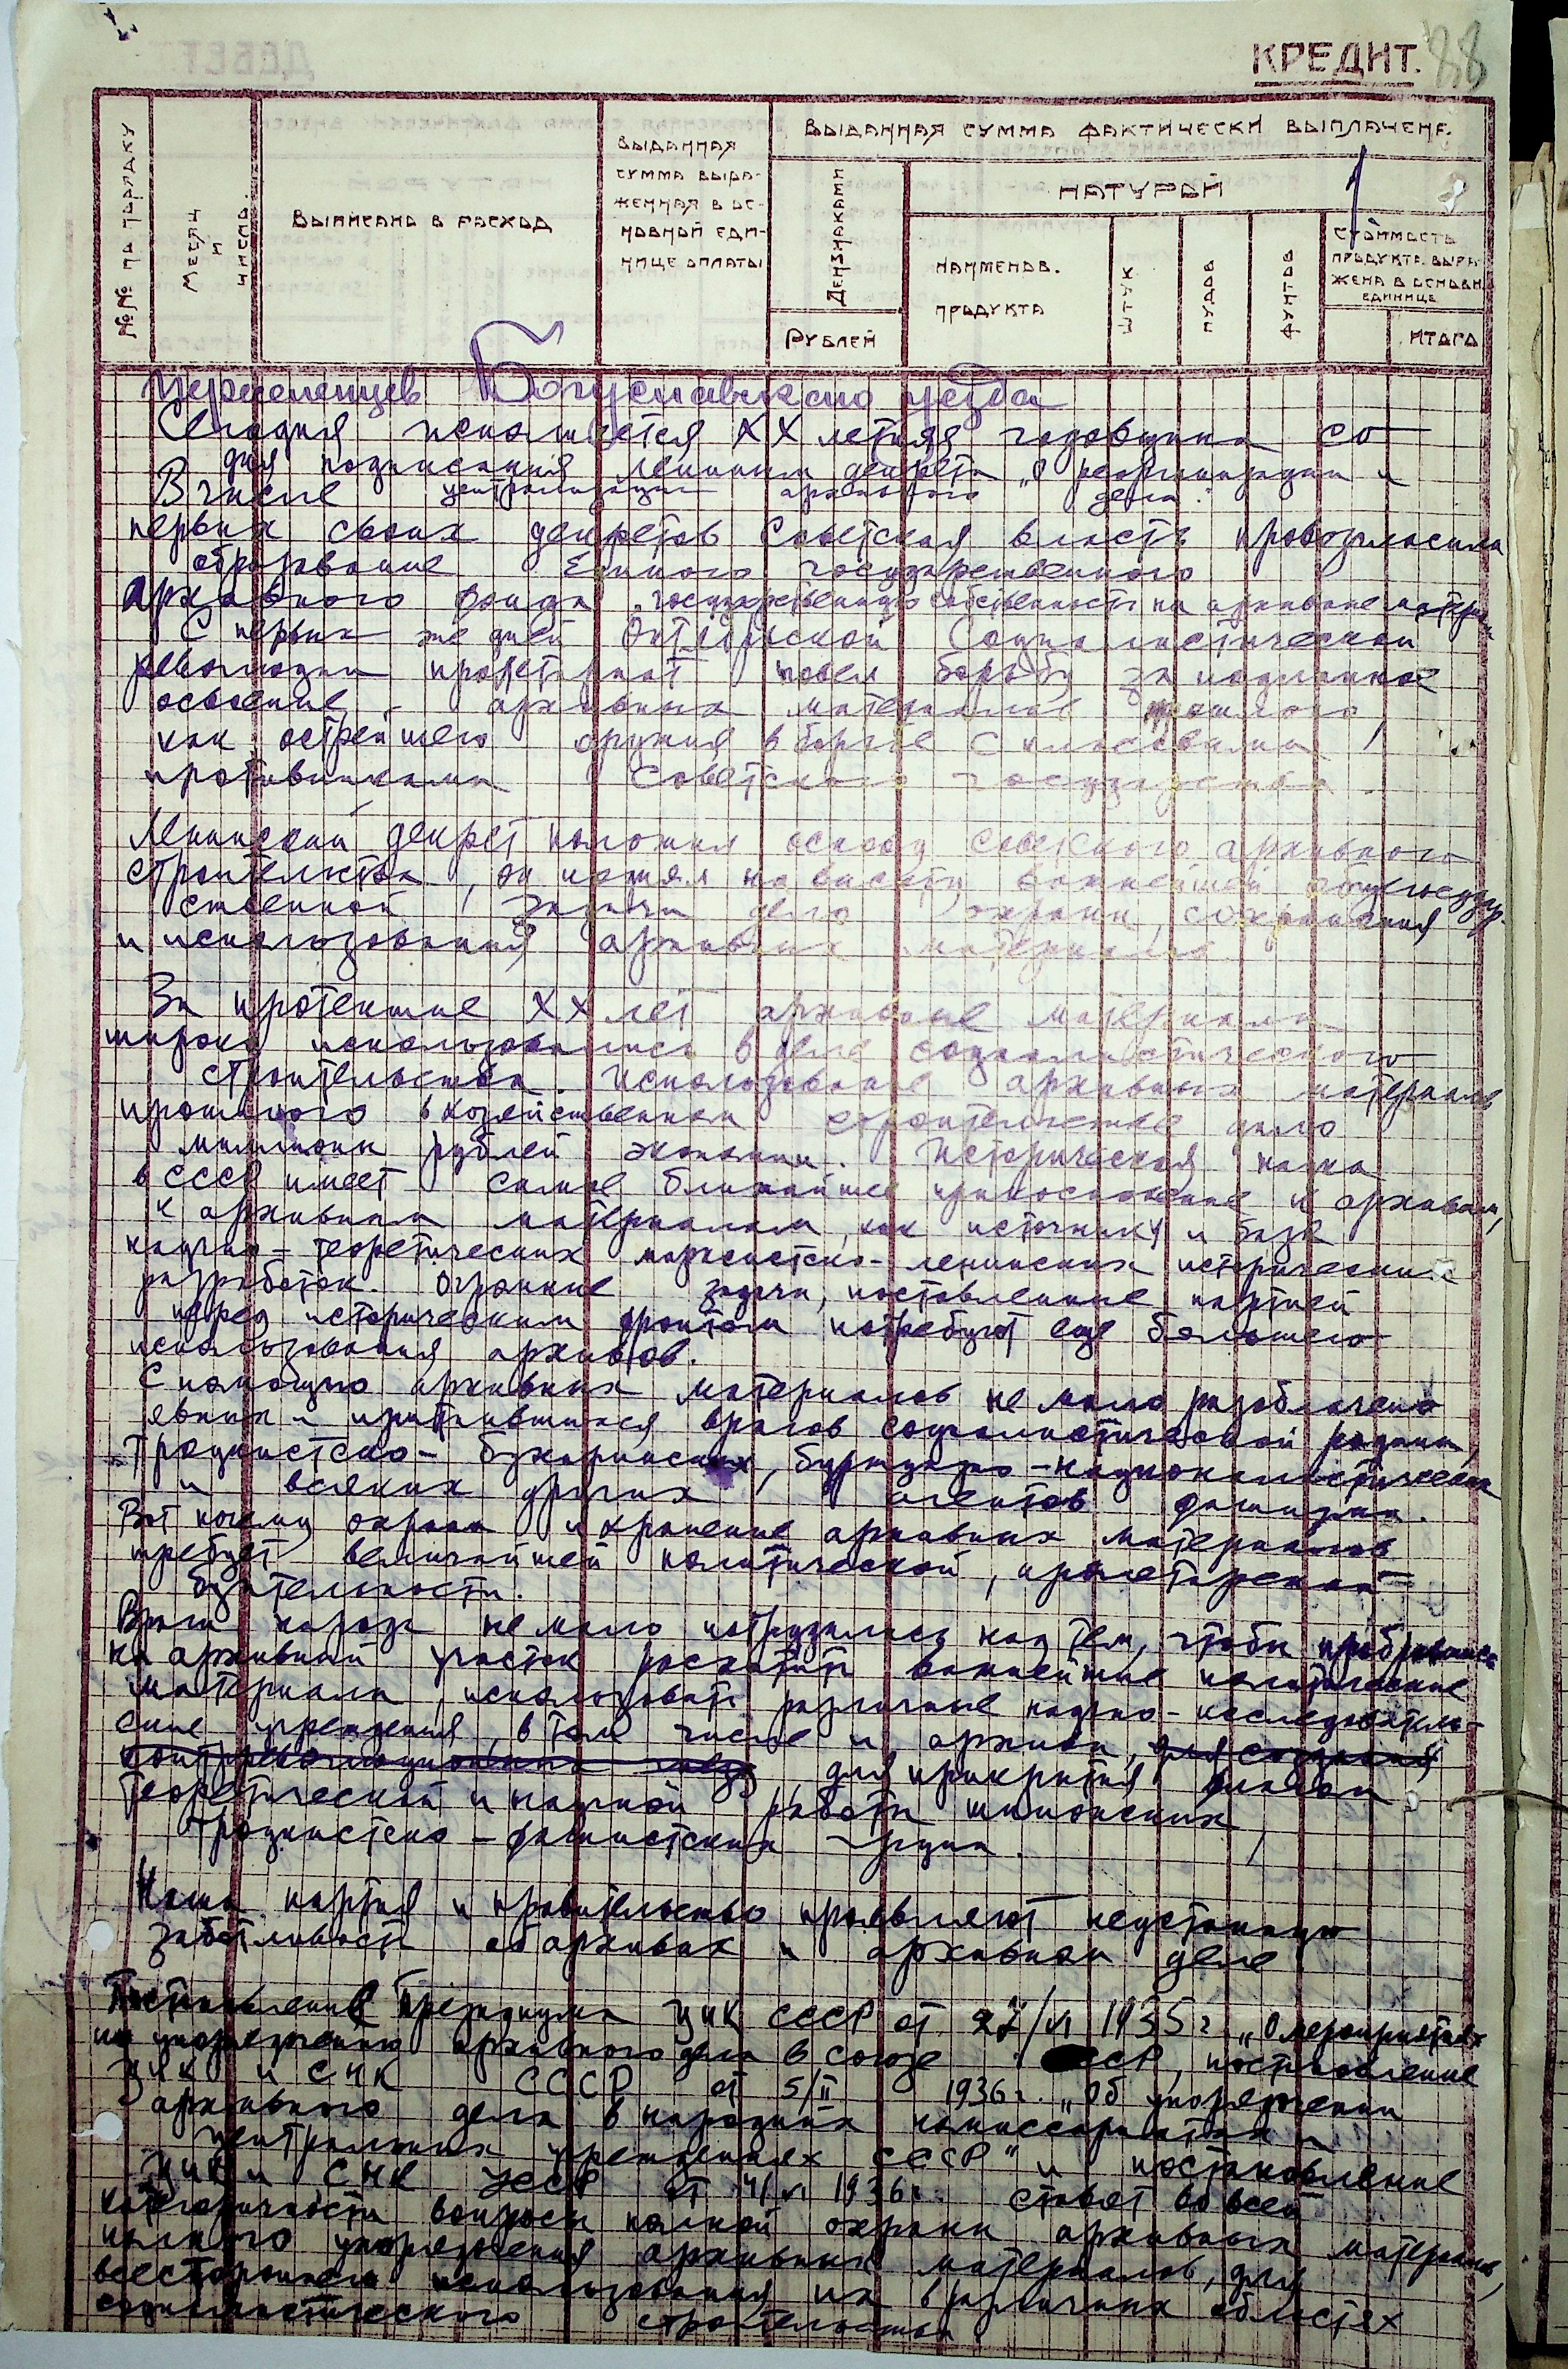 КРЕДИТ. 88
№№ по порядку
Месяц и число.
Выписано в расход
Выданная сумма выраженная в основной единице оплаты
Выданная сумма фактически выплачена.
Дензнаками
Рублей
Натурой
Наименов. продукта
Штук
Пудов
Фунтов
Стоимость продукта выражена в основн единице
Итого
Богуславского уезда
Сегодня исполняется XX летняя годовщина со
дня подписания Лениным декрета „О реорганизации и
централизации архивного дела".
В числе
первых своих декретов Советская власть провозгласила
образование Единого государственного
архивного фонда, государственную собственность на архивные материалы
С первых же дней Октябрьской Социалистической
революции пролетариат повел борьбу за подлинное
освоение архивных материалов прошлого
как острейшего оружия в борьбе с классовыми
противниками Советского государства
Ленинский декрет положил основу советского архивного
строительства, он поднял на высоту важнейшей общегосудар-
ственной задачи дело охраны, сохранения
и использования архивных материалов
За протекшие XX лет архивные материалы
широко использовались в деле социалистического
строительства. Использование архивных материалов
прошлого в хозяйственном строительстве дало
миллионы рублей экономии. Историческая наука
в СССР имеет самое ближайшее прикосновение к архивам,
к архивным материалам, как источнику и базе
научно-теоретических марксистско-ленинских исторических
разработок. Огромные задачи, поставленные партией
перед историческим фронтом потребуют еще большего
использования архивов.
С помощью архивных материалов не мало разоблачено
явных и притаившихся врагов социалистической родины,
троцкистско-бухаринских, буржуазно-националистических
и всяких других агентов фашизма.
Вот почему охрана и хранение архивных материалов
требует величайшей политической, пролетарской
бдительности.
Враги народа не мало потрудились над тем, чтобы пробравшись
на архивный участок расхитить важнейшие политические
материалы, использовать различные научно-исследователь-
ские учреждения, в том числе и архивы, для создания
контрреволюционных гнезд для прикрытия флагом
теоретической и научной работы шпионских,
троцкистско-фашистских групп.
Наша партия и правительство проявляют неустанную
заботливость об архивах и архивном деле
Постановление Президиума ЦИК СССР от 27/VI 1935 г „О мероприятиях
по упорядочению архивного дела в Союзе ССР, постановление
ЦИК и СНК СССР от 5/II 1936 г. „Об упорядочении
архивного дела в народных комиссариатах и
центральных учреждениях СССР" и постановление
ЦИК и СНК УССР от 4/VI 1936 г. ставят во всей
категоричности вопросы полной охраны архивных материалов,
полного упорядочения архивных материалов, для
всестороннего использования их в различных областях
социалистического строительства.